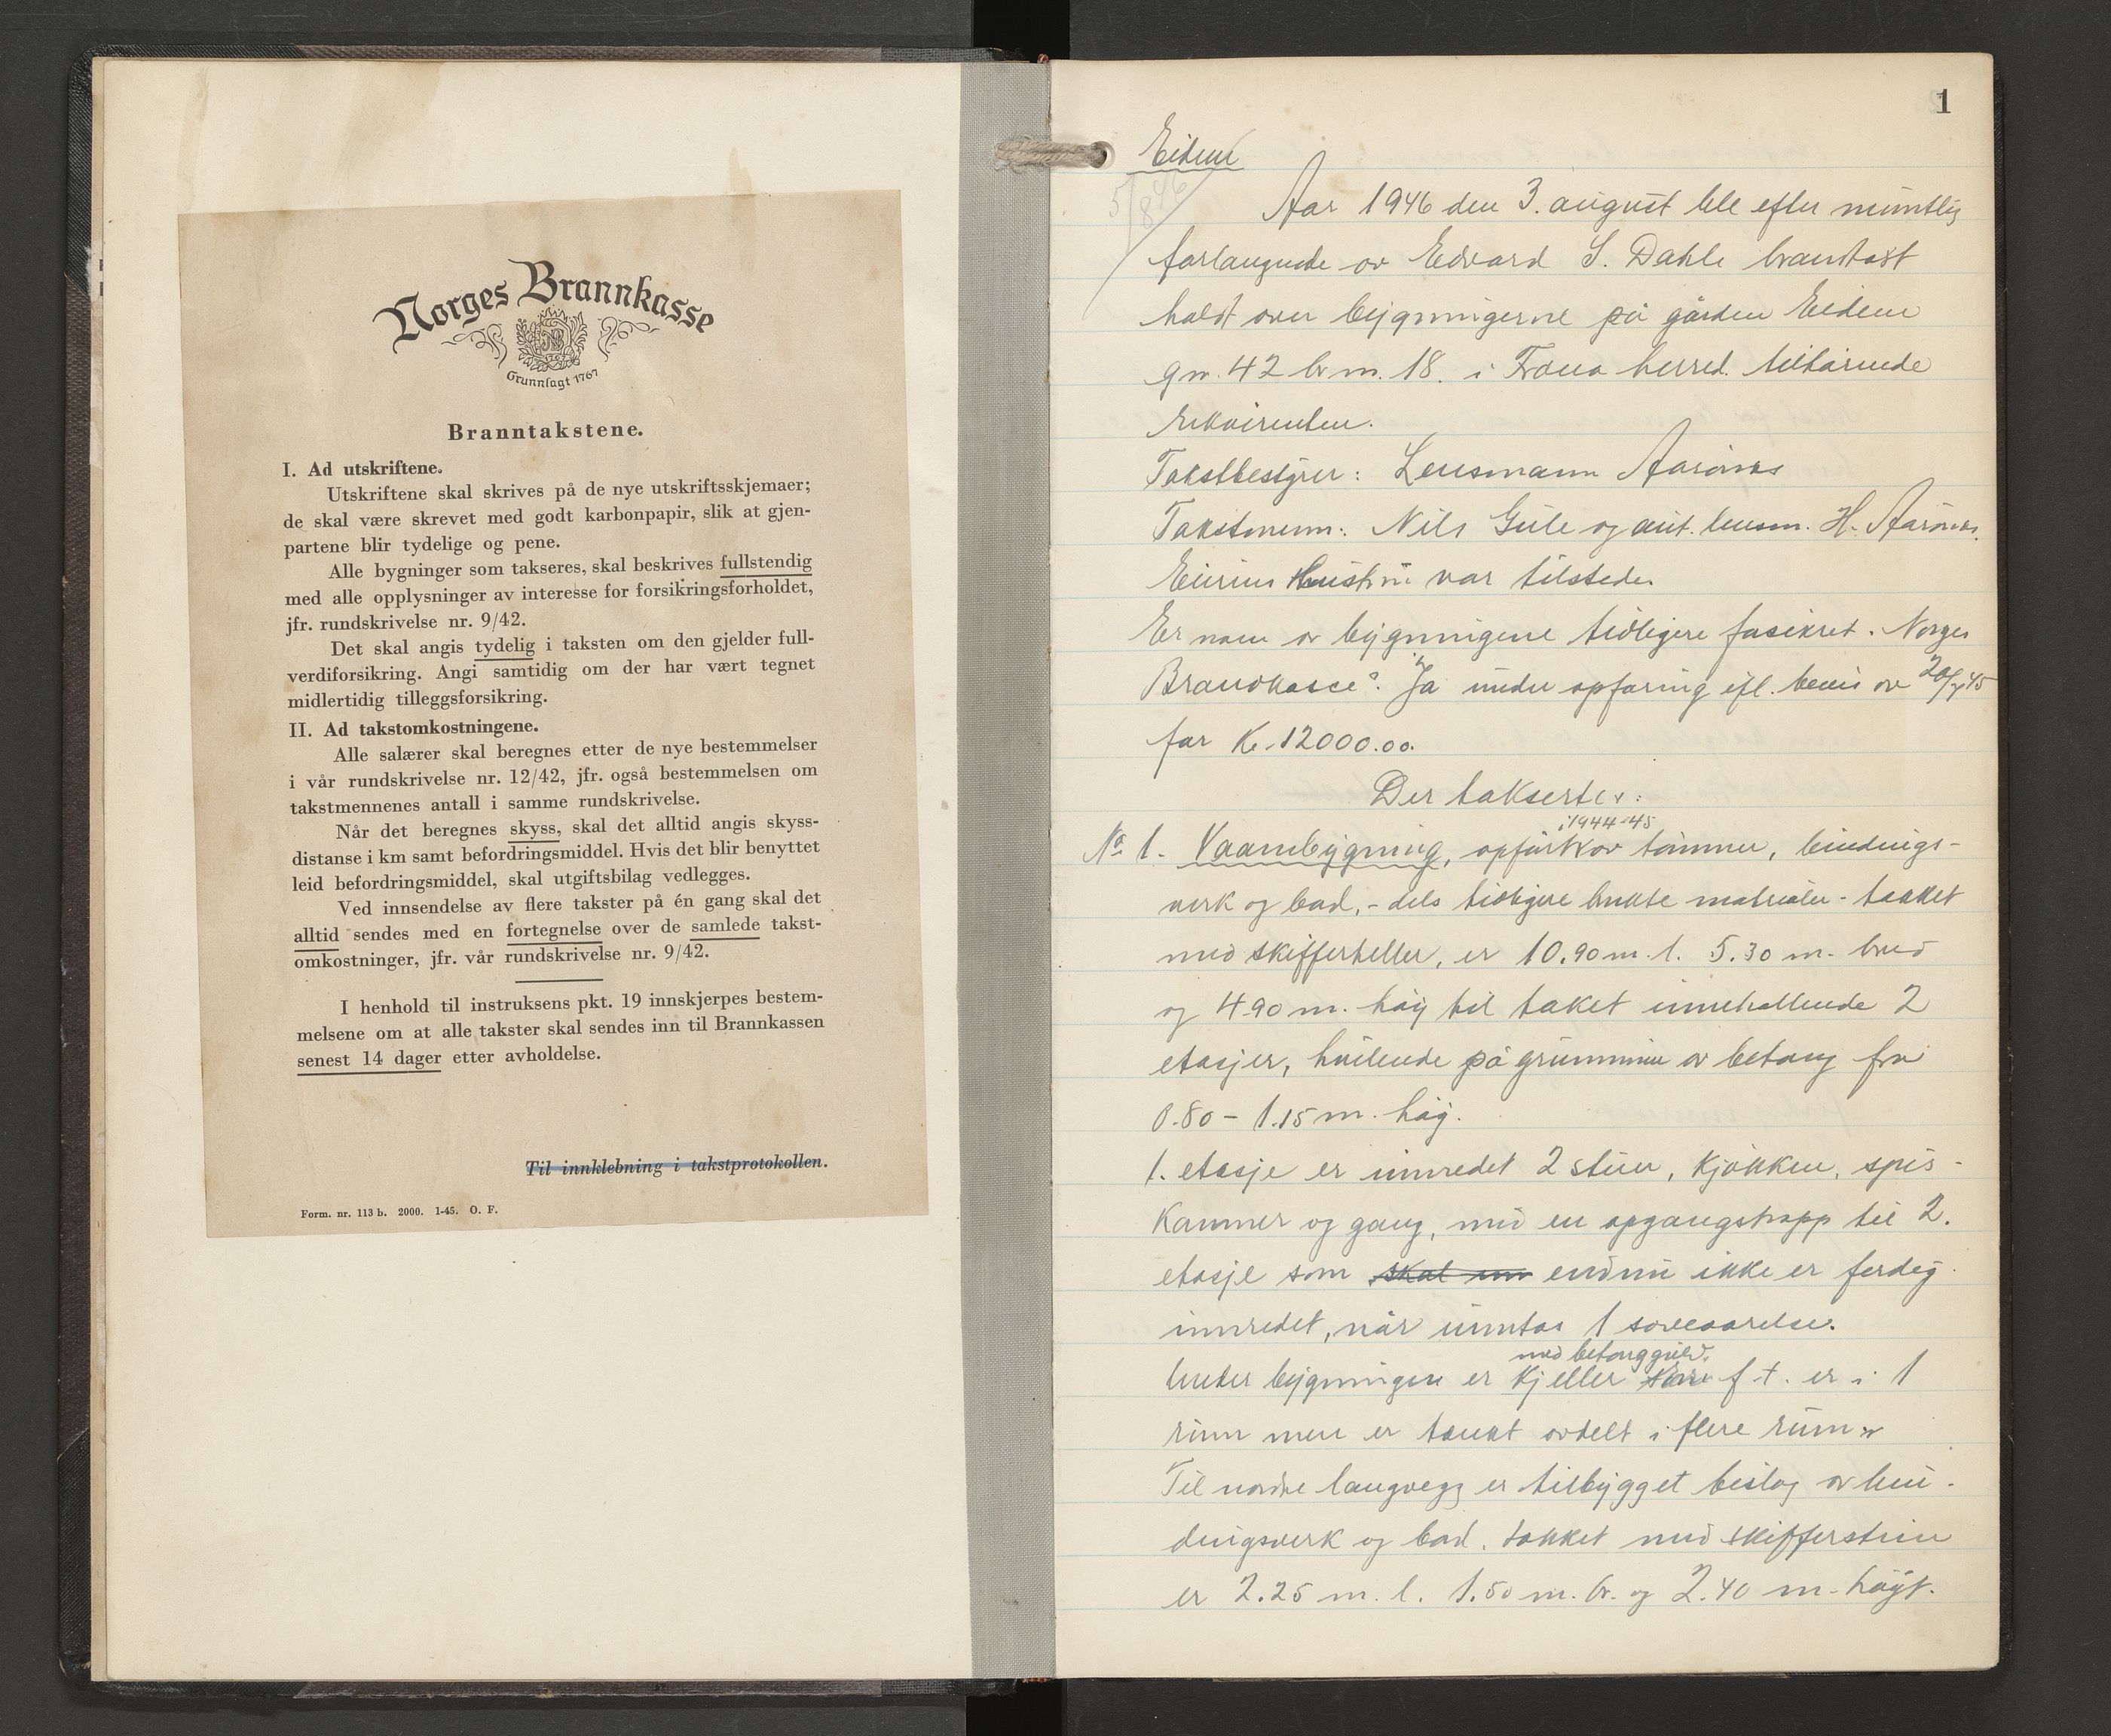 Norges Brannkasse
Grunnlagt 1767
Branntakstene.
I. Ad utskriftene.
Utskriftene skal skrives på de nye utskriftsskjemaer;
de skal være skrevet med godt karbonpapir, slik at gjen-
partene blir tydelige og pene.
Alle bygninger som takseres, skal beskrives fullstendig
med alle opplysninger av interesse for forsikringsforholdet,
jfr. rundskrivelse nr. 9/42.
Det skal angis tydelig i taksten om den gjelder full-
verdiforsikring. Angi samtidig om der har vært tegnet
midlertidig tilleggsforsikring.
II. Ad takstomkostningene.
Alle salærer skal beregnes etter de nye bestemmelser
i vår rundskrivelse nr. 12/42, jfr. også bestemmelsen om
takstmennenes antall i samme rundskrivelse.
Når det beregnes skyss, skal det alltid angis skyss-
distanse i km samt befordringsmiddel. Hvis det blir benyttet
leid befordringsmiddel, skal utgiftsbilag vedlegges.
Ved innsendelse av flere takster på én gang skal det
alltid sendes med en fortegnelse over de samlede takst-
omkostninger, jfr. vår rundskrivelse nr. 9/42.
I henhold til instruksens pkt. 19 innskjerpes bestem-
melsene om at alle takster skal sendes inn til Brannkassen
senest 14 dager etter avholdelse.
Til innklebning i takstprotokollen.
Form. nr. 113 b. 2000. 1-45. O. F.
1
Eidem
5/8 46
Aar 1946 den 3. august ble efter muntlig
forlangende av Edvard S. Dahle brantakst
holdt over bygningerne på gården Eidem
gnr. 42 br.nr. 18. i Fræna herred. tilhörende
rekvirenten.
Takstbestyrer: Lensmann Aarönes
Takstmenn: Nils Gule og ass. lensm. H. Aarönes.
Eierens hustru var tilstede.
Er noen av bygningene tidligere forsikret i Norges
Brandkasse? Ja under opföring ifl. bevis av 20/7 45
for Kr. 12000.00.
Der takserter:
i 1944-45
No 1. Vaanbygning, opfört av tömmer, bindings-
verk og bord, - dels tidligere brukte materialer - takket
med skifferheller, er 10.90 m. l. 5.30 m. bred
og 4.90 m. höy til taket inneholdende 2
etasjer, hvilende på grunnmur av betong fra
0.80 - 1.15 m. höy.
1. etasje er innredet 2 stuer, kjökken, spis-
kammer og gang, med en opgangstrapp til 2.
etasje som skal inn endnu ikke er ferdig
innredet, når unntas 1 soveværelse.
med betonggulv.
Under bygningen er kjeller f. t. er i 1
rum men er tænkt avdelt i flere rum.
Til nordre langvegg er tilbygget bislag av bin-
dingsverk og bord. takket med skifferstein
er 2.25 m. l. 1.50 m. br. og 2.40 m. höyt.